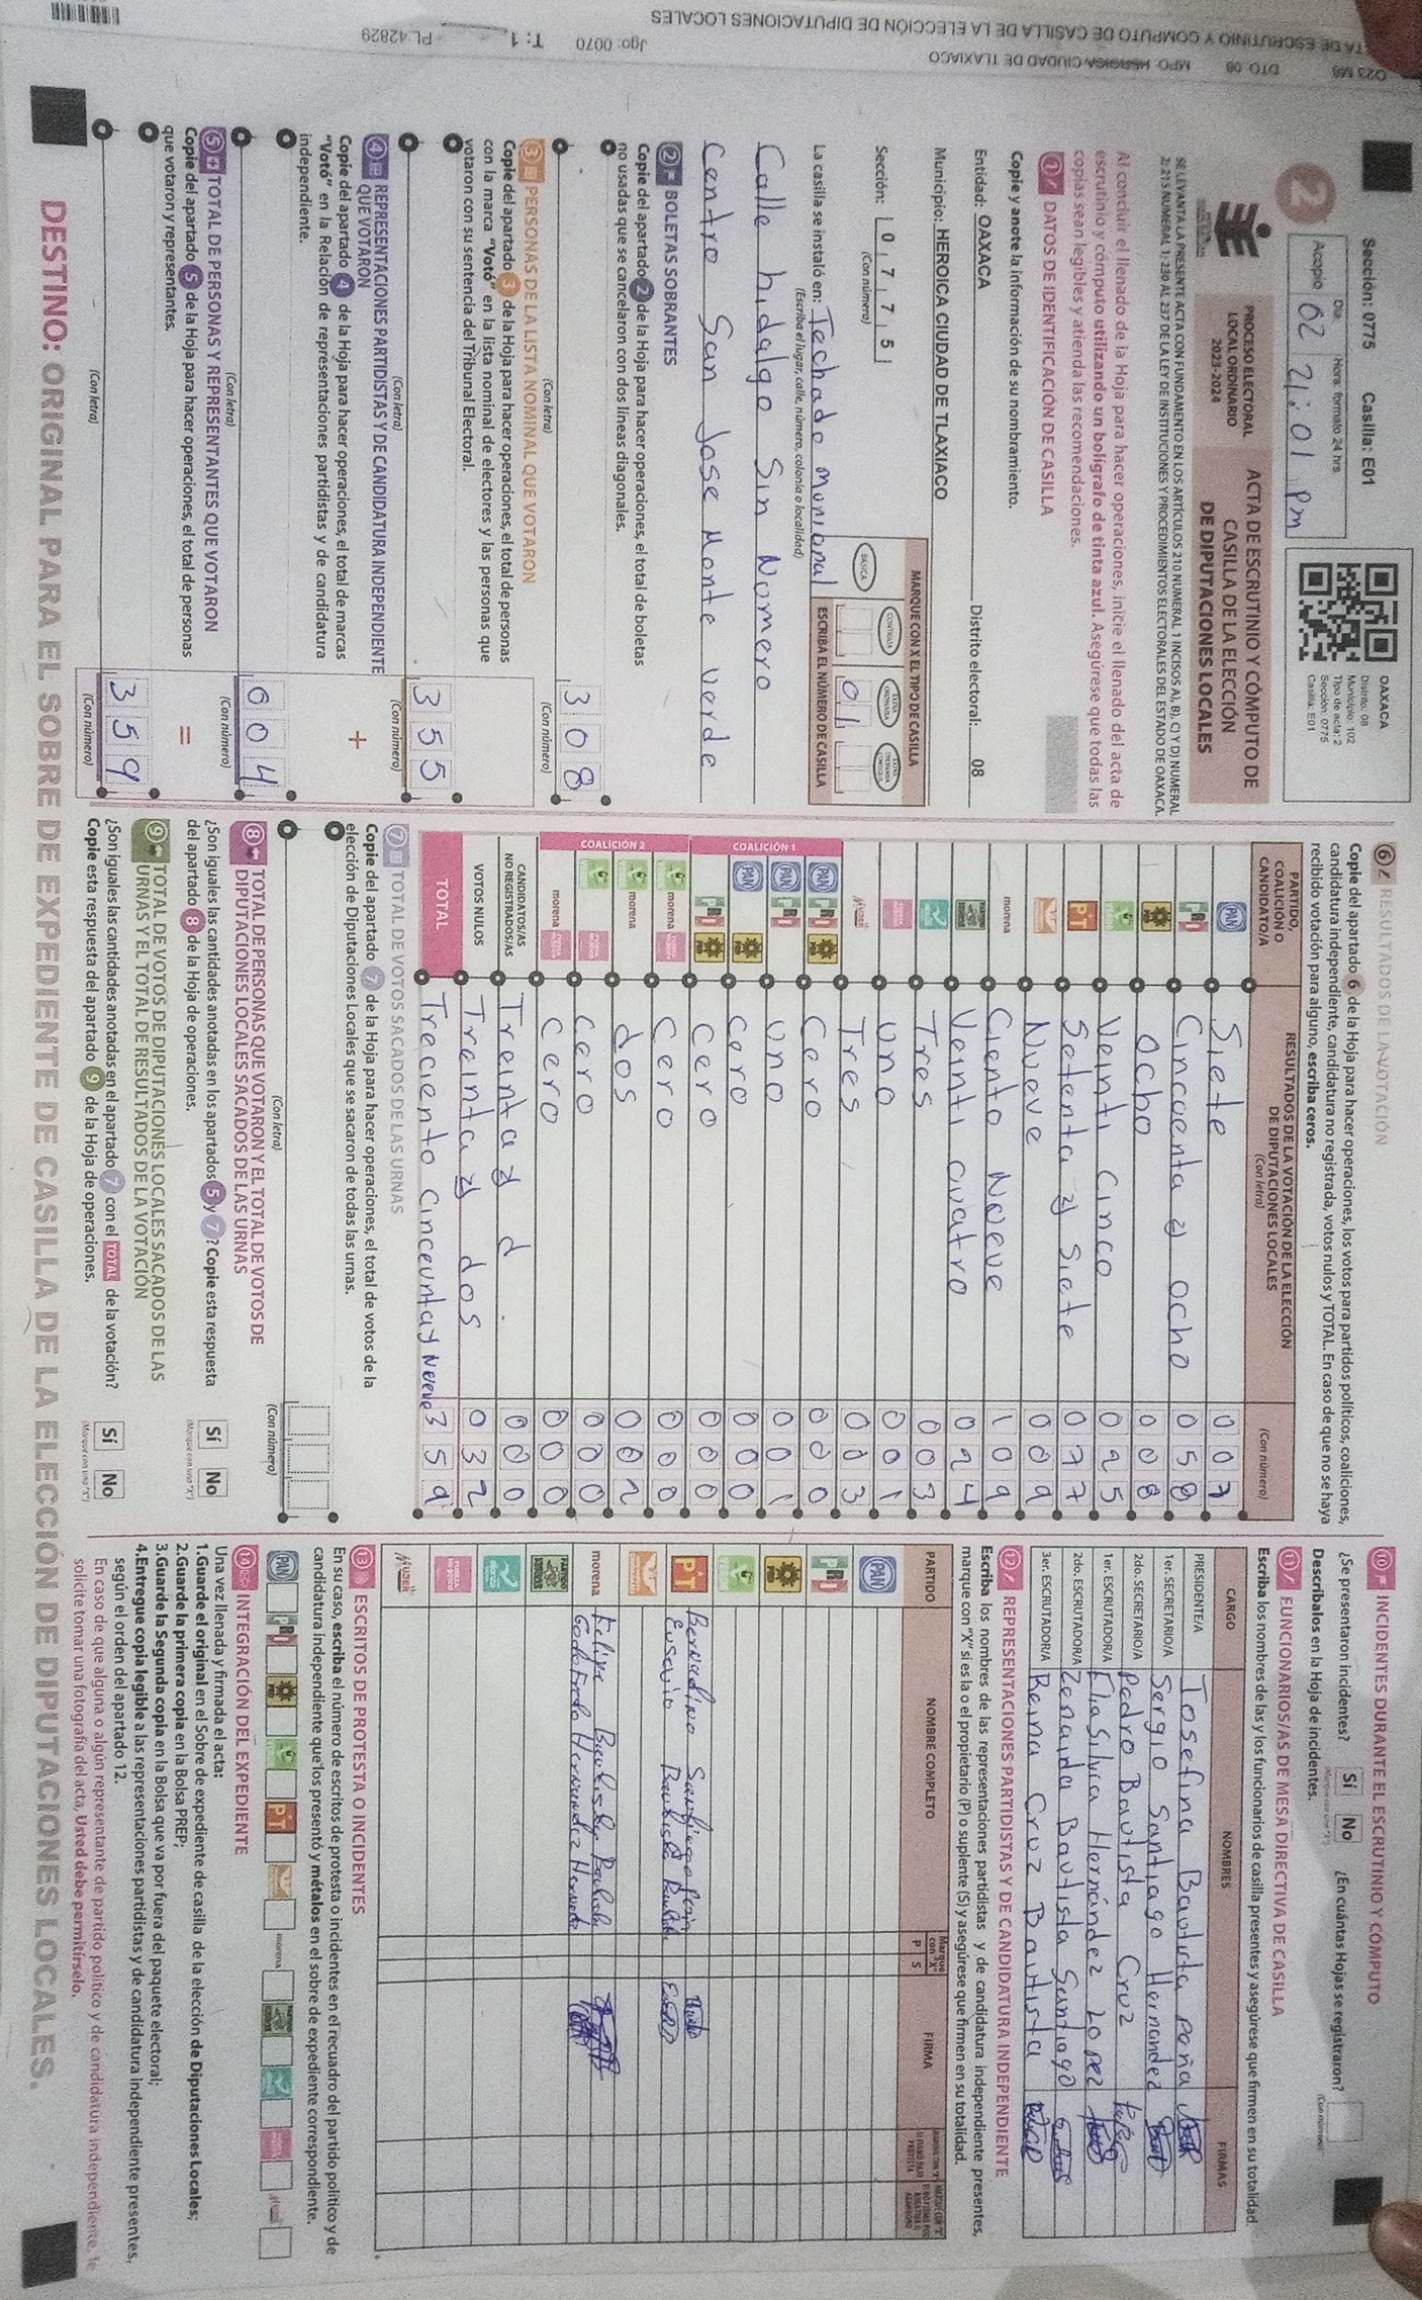 023 M8 DTO 08 MPO. HEROICA CIUDAD DE TLAXIACO
Jgo: 0070 T: 1 PL: 42829
TA DE ESCRUTINIO Y COMPUTO DE CASILLA DE LA ELECCIÓN DE DIPUTACIONES LOCALES
Sección: 0775 Casilla: E01
2
Día: Hora: formato 24 hrs
Acopio 02 21:01 pm
OAXACA
Distrito: 08
Municipio: 102
Tipo de acta: 2
Sección: 0775
Casilla: E01
PROCESO ELECTORAL
LOCAL ORDINARIO
2023-2024
ACTA DE ESCRUTINIO Y CÓMPUTO DE
CASILLA DE LA ELECCIÓN
DE DIPUTACIONES LOCALES
SE LEVANTA LA PRESENTE ACTA CON FUNDAMENTO EN LOS ARTÍCULOS 210 NUMERAL 1 INCISOS A), B), C) Y D) NUMERAL
2; 215 NUMERAL 1; 230 AL 237 DE LA LEY DE INSTITUCIONES Y PROCEDIMIENTOS ELECTORALES DEL ESTADO DE OAXACA.
Al concluir el llenado de la Hoja para hacer operaciones, inicie el llenado del acta de
escrutinio y cómputo utilizando un bolígrafo de tinta azul. Asegúrese que todas las
copias sean legibles y atienda las recomendaciones.
1 DATOS DE IDENTIFICACIÓN DE CASILLA
Copie y anote la información de su nombramiento.
Entidad: OAXACA Distrito electoral: 08
Municipio: HEROICA CIUDAD DE TLAXIACO
MARQUE CON X EL TIPO DE CASILLA
Sección: 0 7 7 5
(Con número)
BÁSICA CONTIGUA
0 1
ESCRIBA EL NÚMERO DE CASILLA
La casilla se instaló en: Techado Municipal
(Escriba el lugar, calle, número, colonia o localidad)
Calle hidalgo Sin Nomero
Centro San Jose Monte Verde
2 BOLETAS SOBRANTES
Copie del apartado 2 de la Hoja para hacer operaciones, el total de boletas
no usadas que se cancelaron con dos líneas diagonales.
3 0 8
(Con letra) (Con número)
3 PERSONAS DE LA LISTA NOMINAL QUE VOTARON
Copie del apartado 3 de la Hoja para hacer operaciones, el total de personas
con la marca "Votó" en la lista nominal de electores y las personas que
votaron con su sentencia del Tribunal Electoral.
3 5 5
(Con letra) (Con número)
4 REPRESENTACIONES PARTIDISTAS Y DE CANDIDATURA INDEPENDIENTE
QUE VOTARON
Copie del apartado 4 de la Hoja para hacer operaciones, el total de marcas
"Votó" en la Relación de representaciones partidistas y de candidatura
independiente.
+
0 0 4
(Con letra) (Con número)
5 TOTAL DE PERSONAS Y REPRESENTANTES QUE VOTARON
Copie del apartado 5 de la Hoja para hacer operaciones, el total de personas
que votaron y representantes.
=
3 5 9
(Con letra) (Con número)
6 RESULTADOS DE LA VOTACIÓN
Copie del apartado 6 de la Hoja para hacer operaciones, los votos para partidos políticos, coaliciones,
candidatura independiente, candidatura no registrada, votos nulos y TOTAL. En caso de que no se haya
recibido votación para alguno, escriba ceros.
PARTIDO, COALICIÓN O CANDIDATO/A
RESULTADOS DE LA VOTACIÓN DE LA ELECCIÓN
DE DIPUTACIONES LOCALES
(Con letra)
(Con número)
PAN Siete 0 0 7
PRI Cincoenta y ocho 0 5 8
PRD Ocho 0 0 8
Veinti cinco 0 2 5
PT Setenta y siete 0 7 7
Nueve 0 0 9
morena Ciento Noeve 1 0 9
Veinti cuatro 0 2 4
Tres 0 0 3
Uno 0 0 1
MUJER Tres 0 0 3
COALICIÓN 1
PAN PRI PRD Cero 0 0 0
PAN PRI Uno 0 0 1
PAN PRD Cero 0 0 0
PRI PRD Cero 0 0 0
COALICIÓN 2
morena Cero 0 0 0
morena dos 0 0 2
Cero 0 0 0
morena Cero 0 0 0
CANDIDATOS/AS
NO REGISTRADOS/AS Treinta y d 0 0 0
VOTOS NULOS Treinta y dos 0 3 2
TOTAL Treciento Cinceuntay Neve 3 5 9
7 TOTAL DE VOTOS SACADOS DE LAS URNAS
Copie del apartado 7 de la Hoja para hacer operaciones, el total de votos de la
elección de Diputaciones Locales que se sacaron de todas las urnas.
(Con letra) (Con número)
8 TOTAL DE PERSONAS QUE VOTARON Y EL TOTAL DE VOTOS DE
DIPUTACIONES LOCALES SACADOS DE LAS URNAS
¿Son iguales las cantidades anotadas en los apartados 5 y 7? Copie esta respuesta
del apartado 8 de la Hoja de operaciones.
Sí No
(Marque con una "X")
9 TOTAL DE VOTOS DE DIPUTACIONES LOCALES SACADOS DE LAS
URNAS Y EL TOTAL DE RESULTADOS DE LA VOTACIÓN
¿Son iguales las cantidades anotadas en el apartado 7 con el TOTAL de la votación?
Copie esta respuesta del apartado 9 de la Hoja de operaciones.
Sí No
(Marque con una "X")
10 INCIDENTES DURANTE EL ESCRUTINIO Y CÓMPUTO
¿Se presentaron incidentes? Sí No ¿En cuántas Hojas se registraron?
(Marque con una "X") (Con número)
Descríbalos en la Hoja de incidentes.
11 FUNCIONARIOS/AS DE MESA DIRECTIVA DE CASILLA
Escriba los nombres de las y los funcionarios de casilla presentes y asegúrese que firmen en su totalidad.
CARGO NOMBRES FIRMAS
PRESIDENTE/A Josefina Bautista peña
1er. SECRETARIO/A Sergio Santiago Hernandez
2do. SECRETARIO/A Pedro Bautista Cruz
1er. ESCRUTADOR/A Elia Silvia Hernández Lopez
2do. ESCRUTADOR/A Zenaida Bautista Santiago
3er. ESCRUTADOR/A Reina Cruz Bautista
12 REPRESENTACIONES PARTIDISTAS Y DE CANDIDATURA INDEPENDIENTE
Escriba los nombres de las representaciones partidistas y de candidatura independiente presentes,
marque con "X" si es la o el propietario (P) o suplente (S) y asegúrese que firmen en su totalidad.
PARTIDO NOMBRE COMPLETO Marque con "X" P S FIRMA
PAN
PRI
PRD
PT Bernardino Santiago
Eusevio Bautista Bautista
morena Felipe Bautista Bautista
Godofredo Hernandez
MUJER
13 ESCRITOS DE PROTESTA O INCIDENTES
En su caso, escriba el número de escritos de protesta o incidentes en el recuadro del partido político y de
candidatura independiente que los presentó y métalos en el sobre de expediente correspondiente.
PAN PRI PRD PT morena
14 INTEGRACIÓN DEL EXPEDIENTE
Una vez llenada y firmada el acta:
1.Guarde el original en el Sobre de expediente de casilla de la elección de Diputaciones Locales;
2.Guarde la primera copia en la Bolsa PREP;
3.Guarde la Segunda copia en la Bolsa que va por fuera del paquete electoral;
4.Entregue copia legible a las representaciones partidistas y de candidatura independiente presentes,
según el orden del apartado 12.
En caso de que alguna o algún representante de partido político y de candidatura independiente, le
solicite tomar una fotografía del acta, Usted debe permitírselo.
DESTINO: ORIGINAL PARA EL SOBRE DE EXPEDIENTE DE CASILLA DE LA ELECCIÓN DE DIPUTACIONES LOCALES.